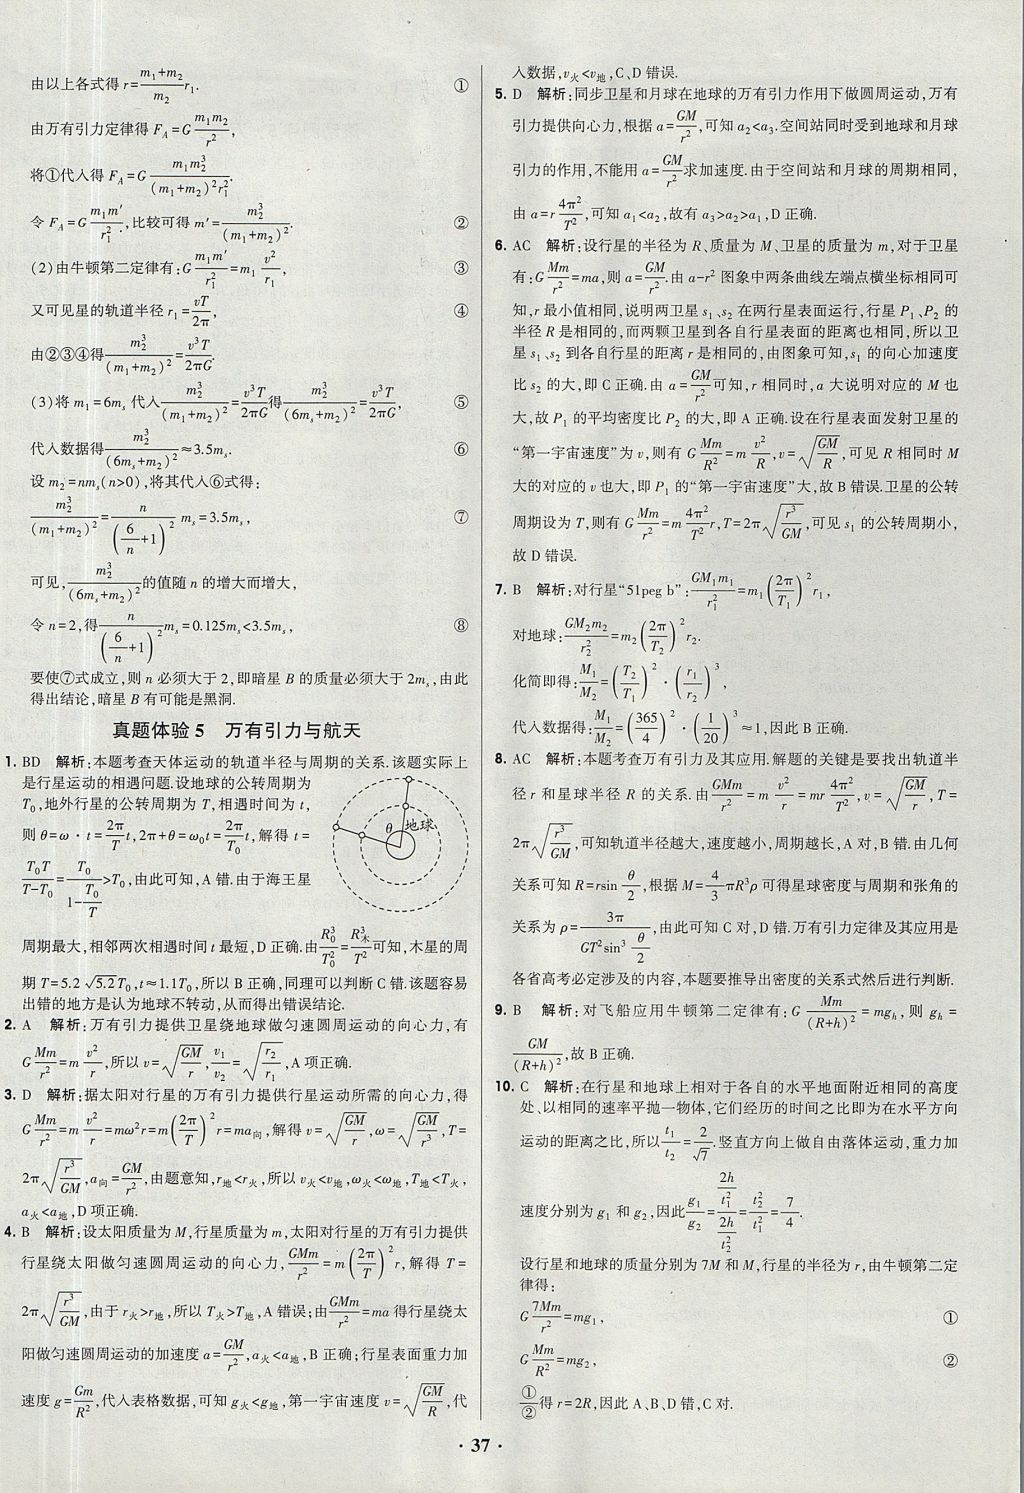 由以上各式得 r=\frac{m₁+m₂}{m₂}r₁. ①
由万有引力定律得 F_A=G\frac{m₁m₂}{r²},
将①代入得 F_A=G\frac{m₁m₂³}{(m₁+m₂)²r₁²}.
令 F_A=G\frac{m₁m'}{r₁²},比较可得 m'=\frac{m₂³}{(m₁+m₂)²}. ②
(2)由牛顿第二定律有:G\frac{m₁m'}{r₁²}=m₁\frac{v²}{r₁}, ③
又可见星的轨道半径 r₁=\frac{vT}{2π}, ④
由②③④得\frac{m₂³}{(m₁+m₂)²}=\frac{v³T}{2πG}.
(3)将 m₁=6mₛ代入\frac{m₂³}{(m₁+m₂)²}=\frac{v³T}{2πG}得\frac{m₂³}{(6mₛ+m₂)²}=\frac{v³T}{2πG}, ⑤
代入数据得\frac{m₂³}{(6mₛ+m₂)²}≈3.5mₛ. ⑥
设 m₂=nmₛ(n>0),将其代入⑥式得:
\frac{m₂³}{(m₁+m₂)²}=\frac{n}{(\frac{6}{n}+1)²}mₛ=3.5mₛ, ⑦
可见,\frac{m₂³}{(6mₛ+m₂)²}的值随 n 的增大而增大,
令 n=2,得\frac{n}{(\frac{6}{n}+1)²}mₛ=0.125mₛ<3.5mₛ, ⑧
要使⑦式成立,则 n 必须大于 2,即暗星 B 的质量必须大于 2mₛ,由此
得出结论,暗星 B 有可能是黑洞.
真题体验 5 万有引力与航天
1. BD 解析:本题考查天体运动的轨道半径与周期的关系.该题实际上
是行星运动的相遇问题.设地球的公转周期为
T₀,地外行星的公转周期为 T,相遇时间为 t,
则 θ=ω·t=\frac{2π}{T}t,2π+θ=ω₀t=\frac{2π}{T₀}t,解得 t=
\frac{T₀T}{T-T₀}=\frac{T₀}{1-\frac{T₀}{T}}>T₀,由此可知,A 错.由于海王星
θ 地球
周期最大,相邻两次相遇时间 t 最短,D 正确.由\frac{R₀³}{T₀²}=\frac{R_木³}{T²}可知,木星的周
期 T=5.2√5.2T₀,t≈1.1T₀,所以 B 正确,同理可以判断 C 错.该题容易
出错的地方是认为地球不转动,从而得出错误结论.
2. A 解析:万有引力提供卫星绕地球做匀速圆周运动的向心力,有
G\frac{Mm}{r²}=m\frac{v²}{r},所以 v=\sqrt{\frac{GM}{r}},\frac{v₁}{v₂}=\sqrt{\frac{r₂}{r₁}},A 项正确.
3. D 解析:据太阳对行星的万有引力提供行星运动所需的向心力,得
G\frac{Mm}{r²}=m\frac{v²}{r}=mω²r=m(\frac{2π}{T})²r=ma_向,解得 v=\sqrt{\frac{GM}{r}},ω=\sqrt{\frac{GM}{r³}},T=
2π\sqrt{\frac{r³}{GM}},a_向=\frac{GM}{r²},由题意知,r_地<r_火,所以 v_火<v_地,ω_火<ω_地,T_地<T_火,
a_火<a_地,D 项正确.
4. B 解析:设太阳质量为 M,行星质量为 m,太阳对行星的万有引力提供
行星绕太阳做匀速圆周运动的向心力,\frac{GMm}{r²}=m(\frac{2π}{T})²r,解得 T=
2π\sqrt{\frac{r³}{GM}},由于 r_火>r_地,所以 T_火>T_地,A 错误;由\frac{GMm}{r²}=ma 得行星绕太
阳做匀速圆周运动的加速度 a=\frac{GM}{r²},a_火<a_地,B 正确;行星表面重力加
速度 g=\frac{Gm}{R²},代入表格数据,可知 g_火<g_地,第一宇宙速度 v=\sqrt{\frac{GM}{R}},代
入数据,v_火<v_地,C、D 错误.
5. D 解析:同步卫星和月球在地球的万有引力作用下做圆周运动,万有
引力提供向心力,根据 a=\frac{GM}{r²},可知 a₂<a₃.空间站同时受到地球和月球
引力的作用,不能用 a=\frac{GM}{r²}求加速度.由于空间站和月球的周期相同,
由 a=r\frac{4π²}{T²},可知 a₁<a₂,故有 a₃>a₂>a₁,D 正确.
6. AC 解析:设行星的半径为 R、质量为 M、卫星的质量为 m,对于卫星
有:G\frac{Mm}{r²}=ma,则 a=\frac{GM}{r²}.由 a-r² 图象中两条曲线左端点横坐标相同可
知,r 最小值相同,说明两卫星 s₁、s₂ 在两行星表面运行,行星 P₁、P₂ 的
半径 R 是相同的,而两颗卫星到各自行星表面的距离也相同,所以卫
星 s₁、s₂ 到各行星的距离 r 是相同的,由图象可知,s₁ 的向心加速度
比 s₂ 的大,即 C 正确.由 a=\frac{GM}{r²}可知,r 相同时,a 大说明对应的 M 也
大,故 P₁ 的平均密度比 P₂ 的大,即 A 正确.设在行星表面发射卫星的
“第一宇宙速度”为 v,则有 G\frac{Mm}{R²}=m\frac{v²}{R},v=\sqrt{\frac{GM}{R}},可见 R 相同时 M
大的对应的 v 也大,即 P₁ 的“第一宇宙速度”大,故 B 错误.卫星的公转
周期设为 T,则有 G\frac{Mm}{r²}=m\frac{4π²}{T²}r,T=2π\sqrt{\frac{r³}{GM}},可见 s₁ 的公转周期小,
故 D 错误.
7. B 解析:对行星“51peg b”:\frac{GM₁m₁}{r₁²}=m₁(\frac{2π}{T₁})²r₁,
对地球:\frac{GM₂m₂}{r₂²}=m₂(\frac{2π}{T₂})²r₂.
化简即得:\frac{M₁}{M₂}=(\frac{T₂}{T₁})²·(\frac{r₁}{r₂})³,
代入数据得:\frac{M₁}{M₂}=(\frac{365}{4})²·(\frac{1}{20})³≈1,因此 B 正确.
8. AC 解析:本题考查万有引力及其应用.解题的关键是要找出轨道半
径 r 和星球半径 R 的关系.由\frac{GMm}{r²}=m\frac{v²}{r}=mr\frac{4π²}{T²},v=\sqrt{\frac{GM}{r}},T=
2π\sqrt{\frac{r³}{GM}},可知轨道半径越大,速度越小,周期越长,A 对,B 错.由几何
关系可知 R=rsin\frac{θ}{2},根据 M=\frac{4}{3}πR³ρ 可得星球密度与周期和张角的
关系为 ρ=\frac{3π}{GT²sin³\frac{θ}{2}},由此可知 C 对,D 错.万有引力定律及其应用是
各省高考必定涉及的内容,本题要推导出密度的关系式然后进行判断.
9. B 解析:对飞船应用牛顿第二定律有:G\frac{Mm}{(R+h)²}=mg_h,则 g_h=
\frac{GM}{(R+h)²},故 B 正确.
10. C 解析:在行星和地球上相对于各自的水平地面附近相同的高度
处、以相同的速率平抛一物体,它们经历的时间之比即为在水平方向
运动的距离之比,所以\frac{t₁}{t₂}=\frac{2}{√7}.竖直方向上做自由落体运动,重力加
速度分别为 g₁ 和 g₂,因此\frac{g₁}{g₂}=\frac{\frac{2h}{t₁²}}{\frac{2h}{t₂²}}=\frac{t₂²}{t₁²}=\frac{7}{4}.
设行星和地球的质量分别为 7M 和 M,行星的半径为 r,由牛顿第二定
律得:
G\frac{7Mm}{r²}=mg₁, ①
G\frac{Mm}{R²}=mg₂, ②
\frac{①}{②}得 r=2R,因此 A、B、D 错,C 对.
· 37 ·